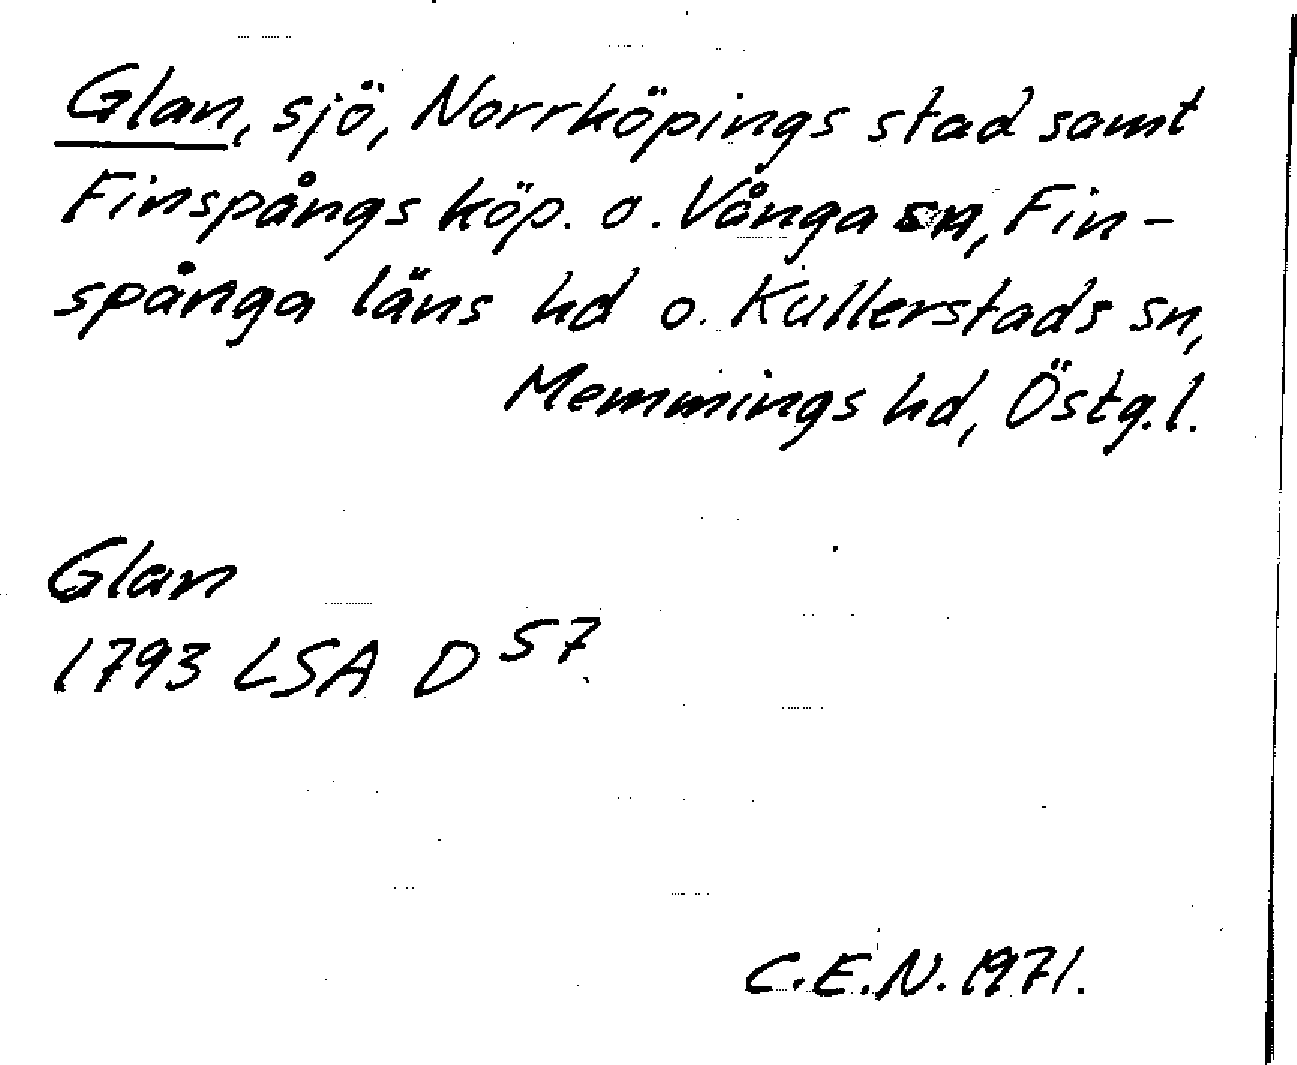 Glan, sjö, Norrköpings stad samt
Finspångs köp. o. Vånga sn, Fin-
spånga läns hd o. Kullerstads sn,
Memmings hd, Östg.l.
Glan
1793 LSA D 57
C.E.N. 1971.